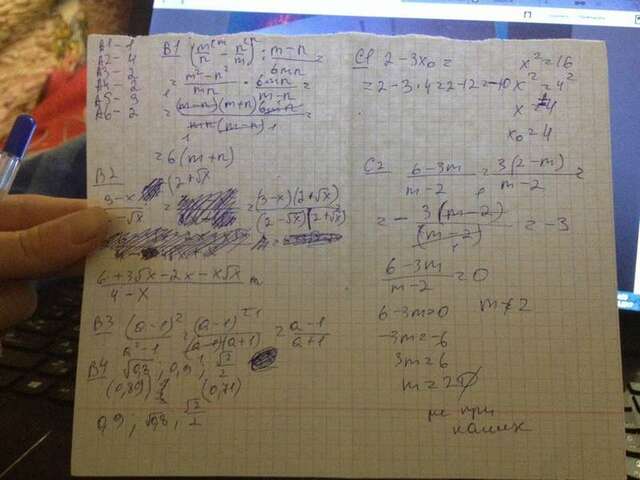 A1 - 1
A2 - 4
A3 - 2
A4 - 2
A5 - 3
A6 - 2
B1 (m^m/n - n^n/m) : (m-n)/6mn =
= (m²-n²)/mn · 6mn/(m-n) =
= (m-n)(m+n)6mn / mn(m-n) =
= 6(m+n)
B2
(2+√x
3-x / 2-√x = = (3-x)(2+√x) / (2-√x)(2+√x)
6+3√x-2x-x√x / 4-x
B3 (a-1)²/(a²-1) = (a-1)²/(a-1)(a+1) = (a-1)/(a+1)
B4 √0,8 ; 0,9 ; √2/2
(0,89) (0,71)
0,9 ; √0,8 ; √2/2
C1 2-3x₀ =
= 2-3·4=2-12=-10
x²=16
x²=4²
x=4
x₀=4
C2 (6-3m)/(m-2) = 3(2-m)/(m-2) =
= - 3(m-2)/(m-2) = -3
(6-3m)/(m-2) = 0
6-3m=0 m≠2
-3m=-6
3m=6
m=2 ∅
не при
каких